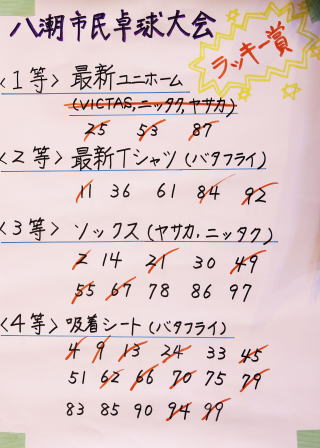 八潮市民卓球大会
ラッキー賞
<1等> 最新ユニホーム
(VICTAS,ニッタク,ヤサカ)
25 53 87
<2等> 最新Tシャツ (バタフライ)
11 36 61 84 92
<3等> ソックス (ヤサカ,ニッタク)
2 14 21 30 49
55 67 78 86 97
<4等> 吸着シート (バタフライ)
4 9 13 24 33 45
51 62 66 70 75 79
83 85 90 94 99